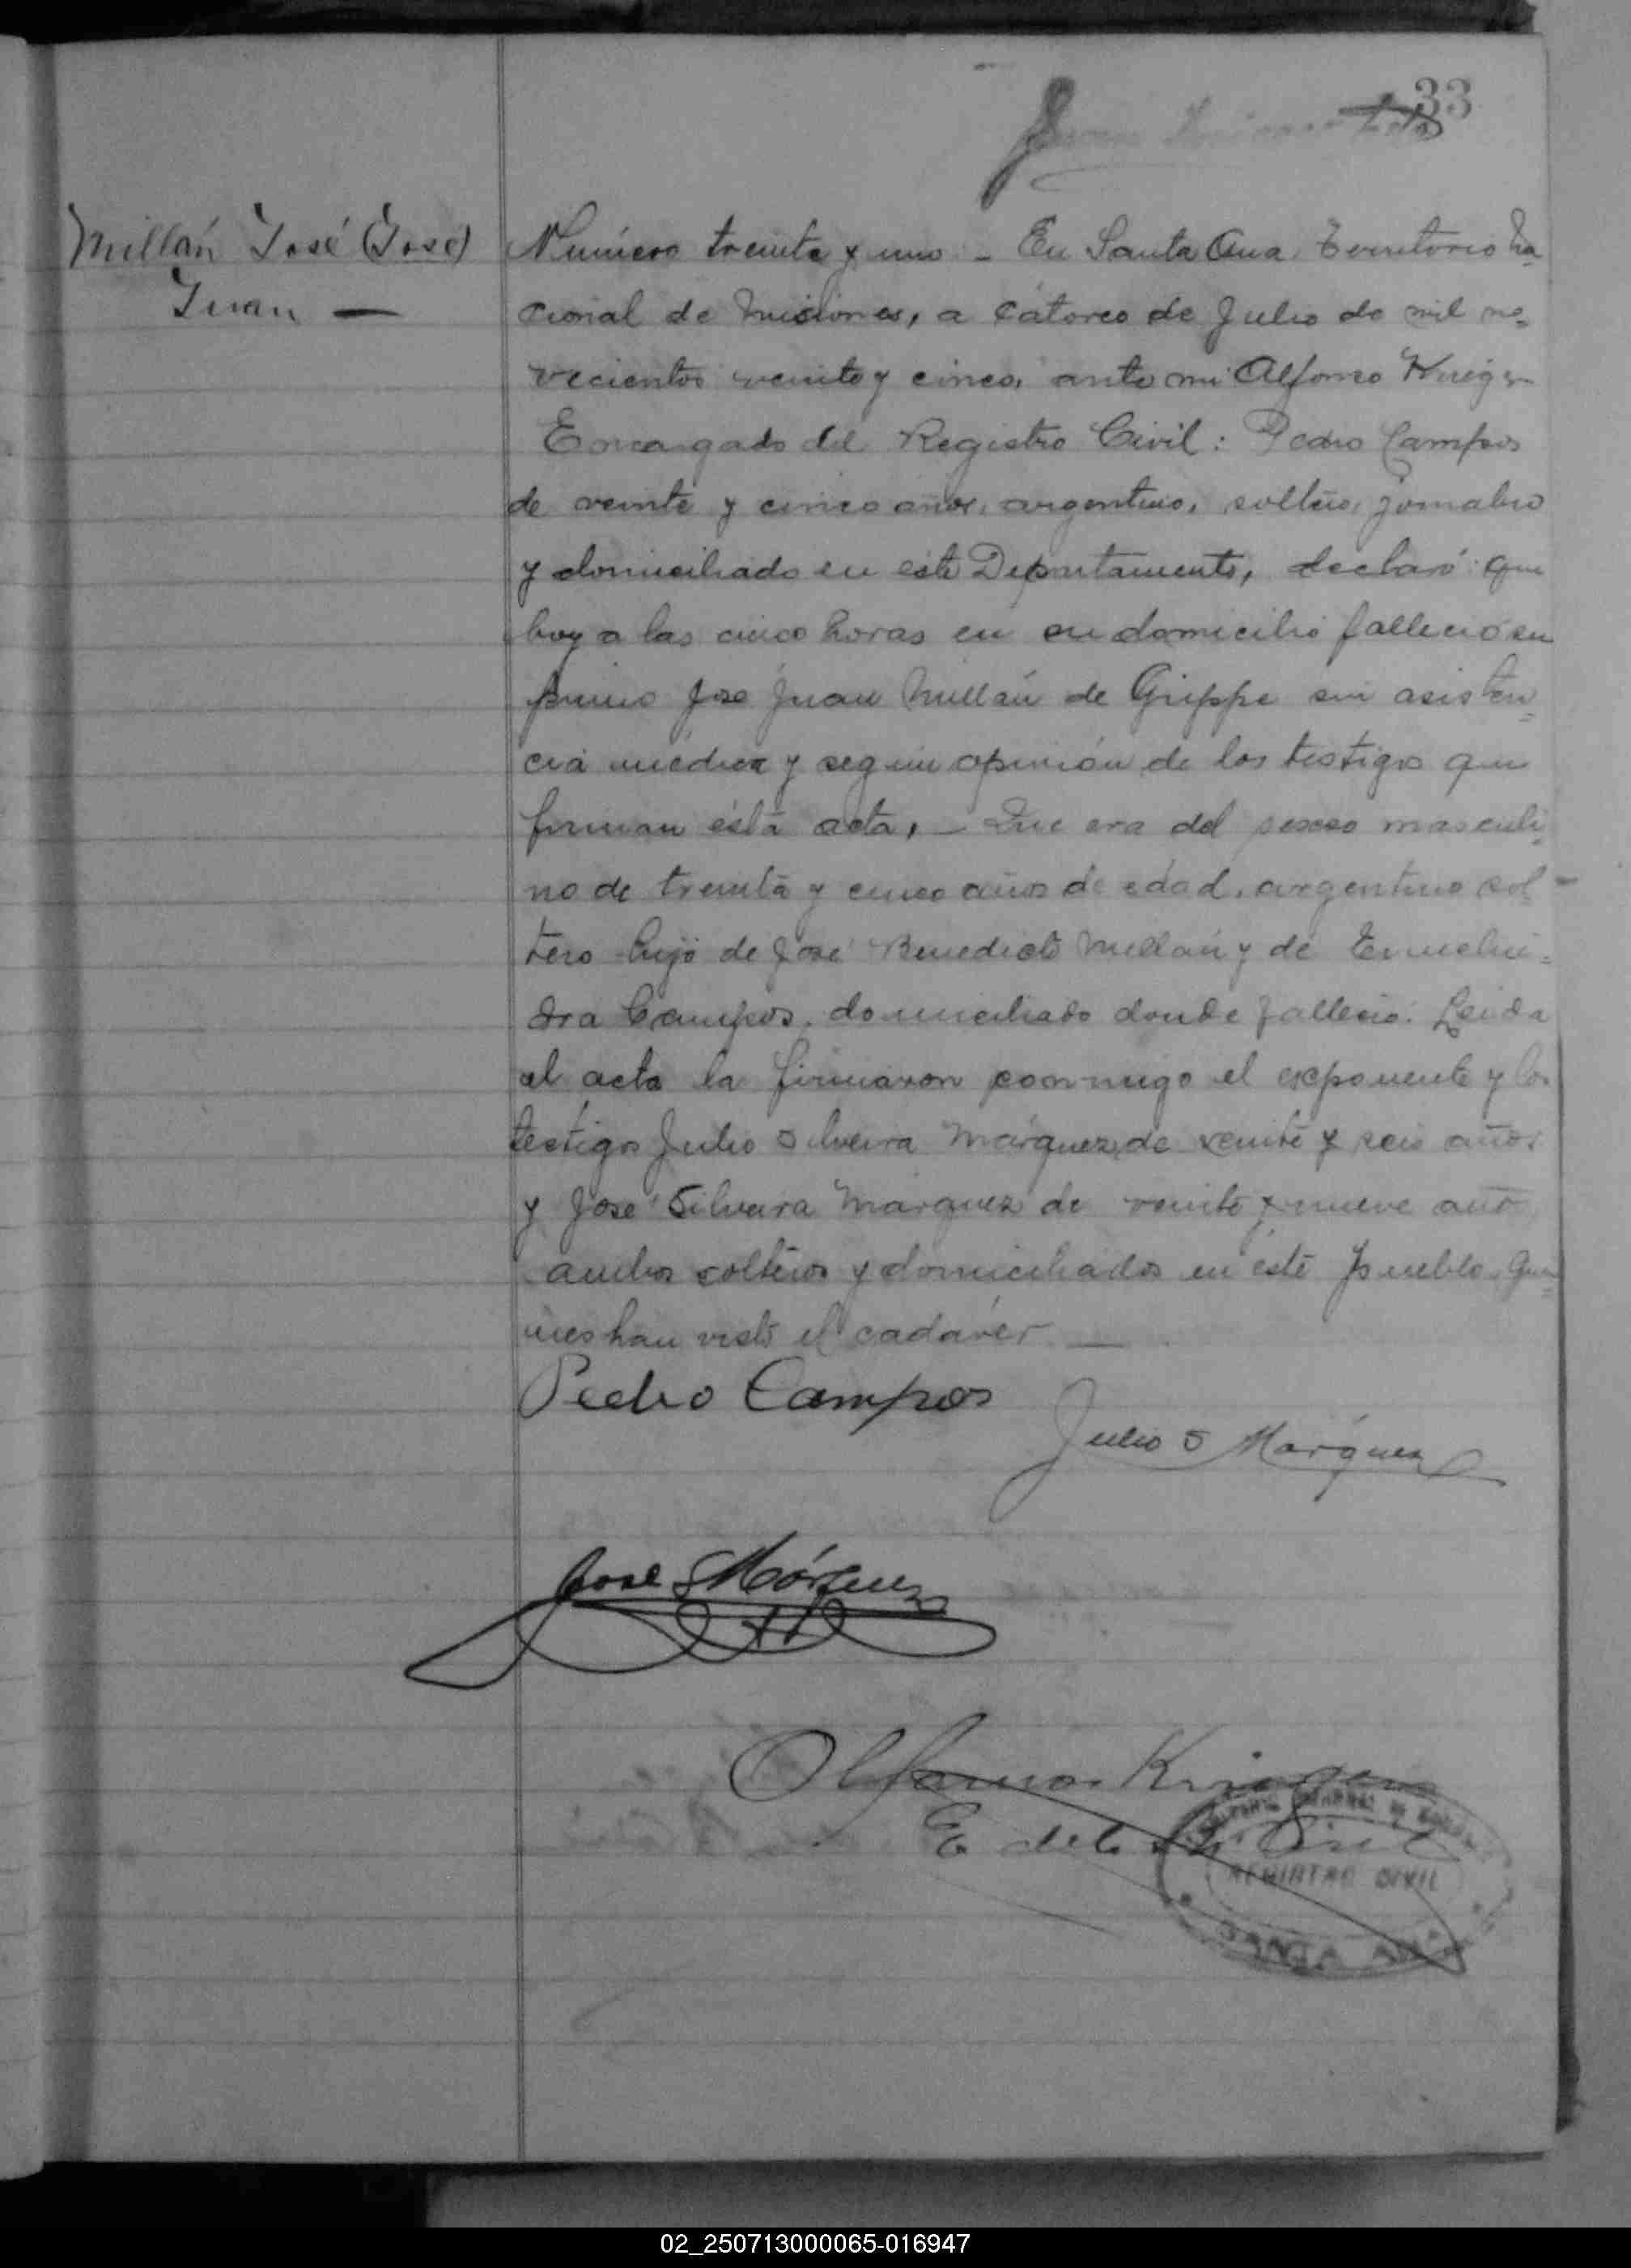 33
Millán José (José)
Juan —
Número treinta y uno - En Santa Ana, Territorio Na
cional de Misiones, a catorce de Julio de mil no=
vecientos veinte y cinco, ante mi Alfonso Krieger
Encargado del Registro Civil: Pedro Campos
de veinte y cinco años, argentino, soltero, jornalero
y domiciliado en este Departamento, declaró: que
hoy a las cinco horas en su domicilio falleció su
primo José Juan Millán de Grippe sin asisten=
cia médica y según opinión de los testigos que
firman ésta acta, - Que era del sexso masculi
no de treinta y cinco años de edad, argentino sol-
tero hijo de José Benedicto Millán y de Ermelin=
dra Campos, domiciliado donde falleció. Leida
el acta la firmaron conmigo el exponente y los
testigos Julio Silveira Márquez, de veinte y seis años
y José Silveira Márquez de veinte y nueve años
ambos solteros y domiciliados en éste pueblo, qui=
enes han visto el cadáver —
Pedro Campos
Julio S Márquez
José S Márquez
Alfonso Krieger
E. del R. Civil
REGISTRO CIVIL
SANTA ANA
02_250713000065-016947